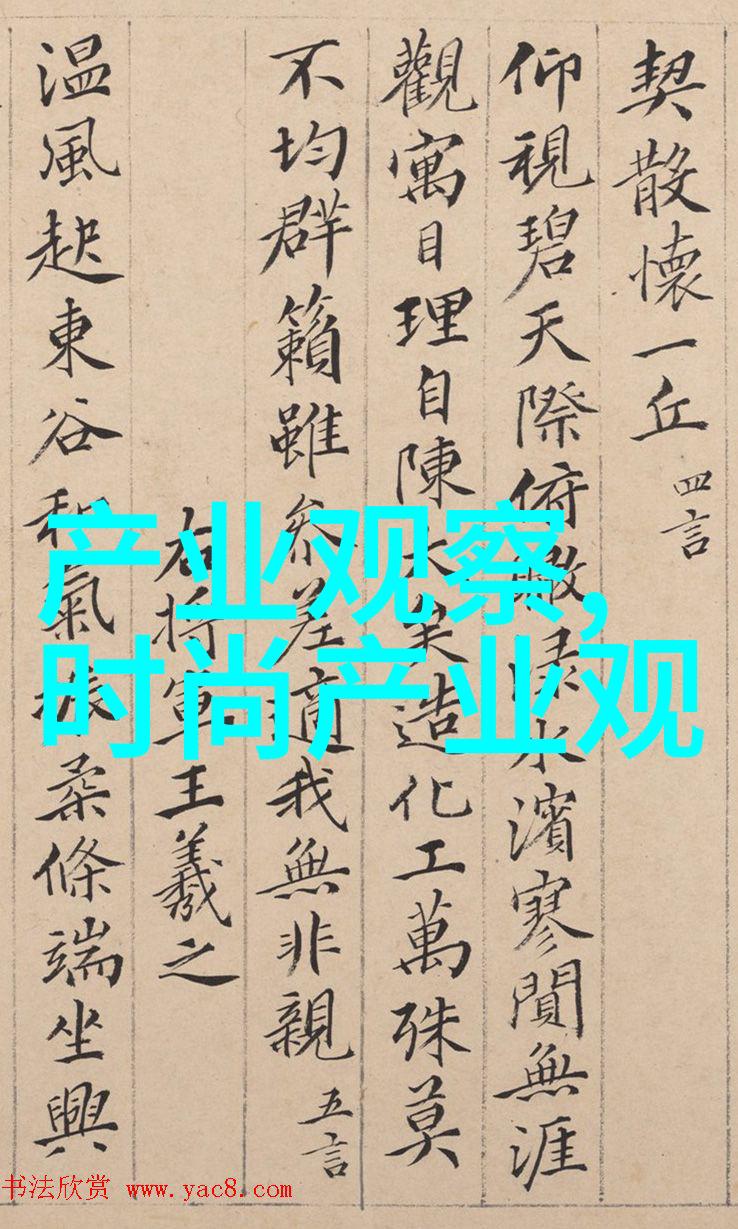 契散懷一丘 四言
仰視碧天際俯瞰淥水濱寥閴無涯
觀寓目理自陳大矣造化工萬殊莫
不均群籟雖參差適我無非親 五言
右將軍王羲之
溫風起東谷和氣振柔條端坐興
产业观察,
时尚产业观
书法欣赏 www.yac8.com